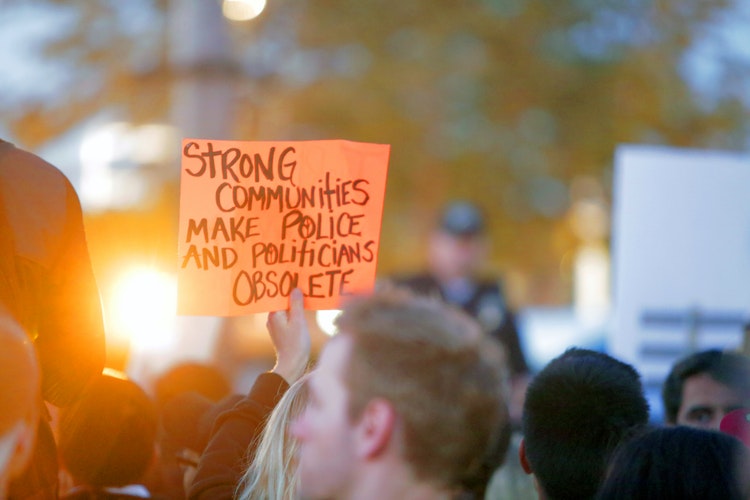 STRONG
COMMUNITIES
MAKE POLICE
AND POLITICIANS
OBSOLETE